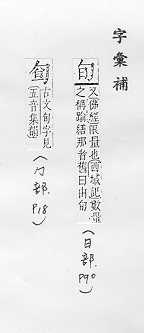 字彙補
旬
又佛經限量也西域記數量
之稱踰繕那者舊曰由旬
(日部. P90)
古文旬字見
五音集韻
(勹部. P18)